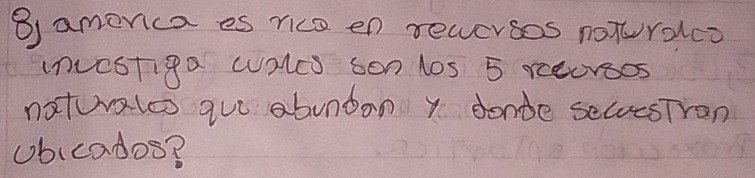 8) america es rica en recursos naturales
investiga cuales son los 5 recursos
naturales que abundan y donde se
ubicados?